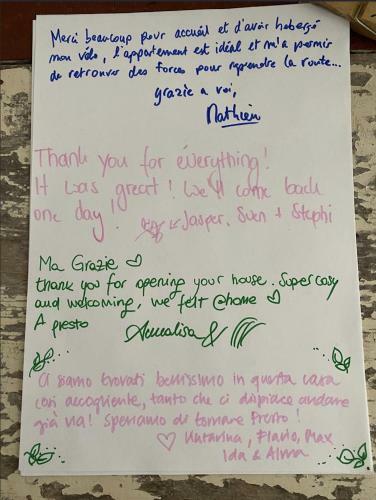 Merci beaucoup pour accueil et d'avoir hébergé
mon vélo, l'appartement est idéal et m'a permis
de retrouver des forces pour reprendre la route...
grazie a voi,
Mathieu
Thank you for everything!
It was great! We'll come back
one day! Jasper, Sven + Stephi
Ma Grazie ♡
thank you for opening your house. Super cosy
and welcoming, we felt @home ♡
A presto
Annalisa &
Ci siamo trovati benissimo in questa casa
così accogliente, tanto che ci dispiace andare
già via! Speriamo di tornare Presto!
♡ Katarina, Flavio, Max
Ida & Alma